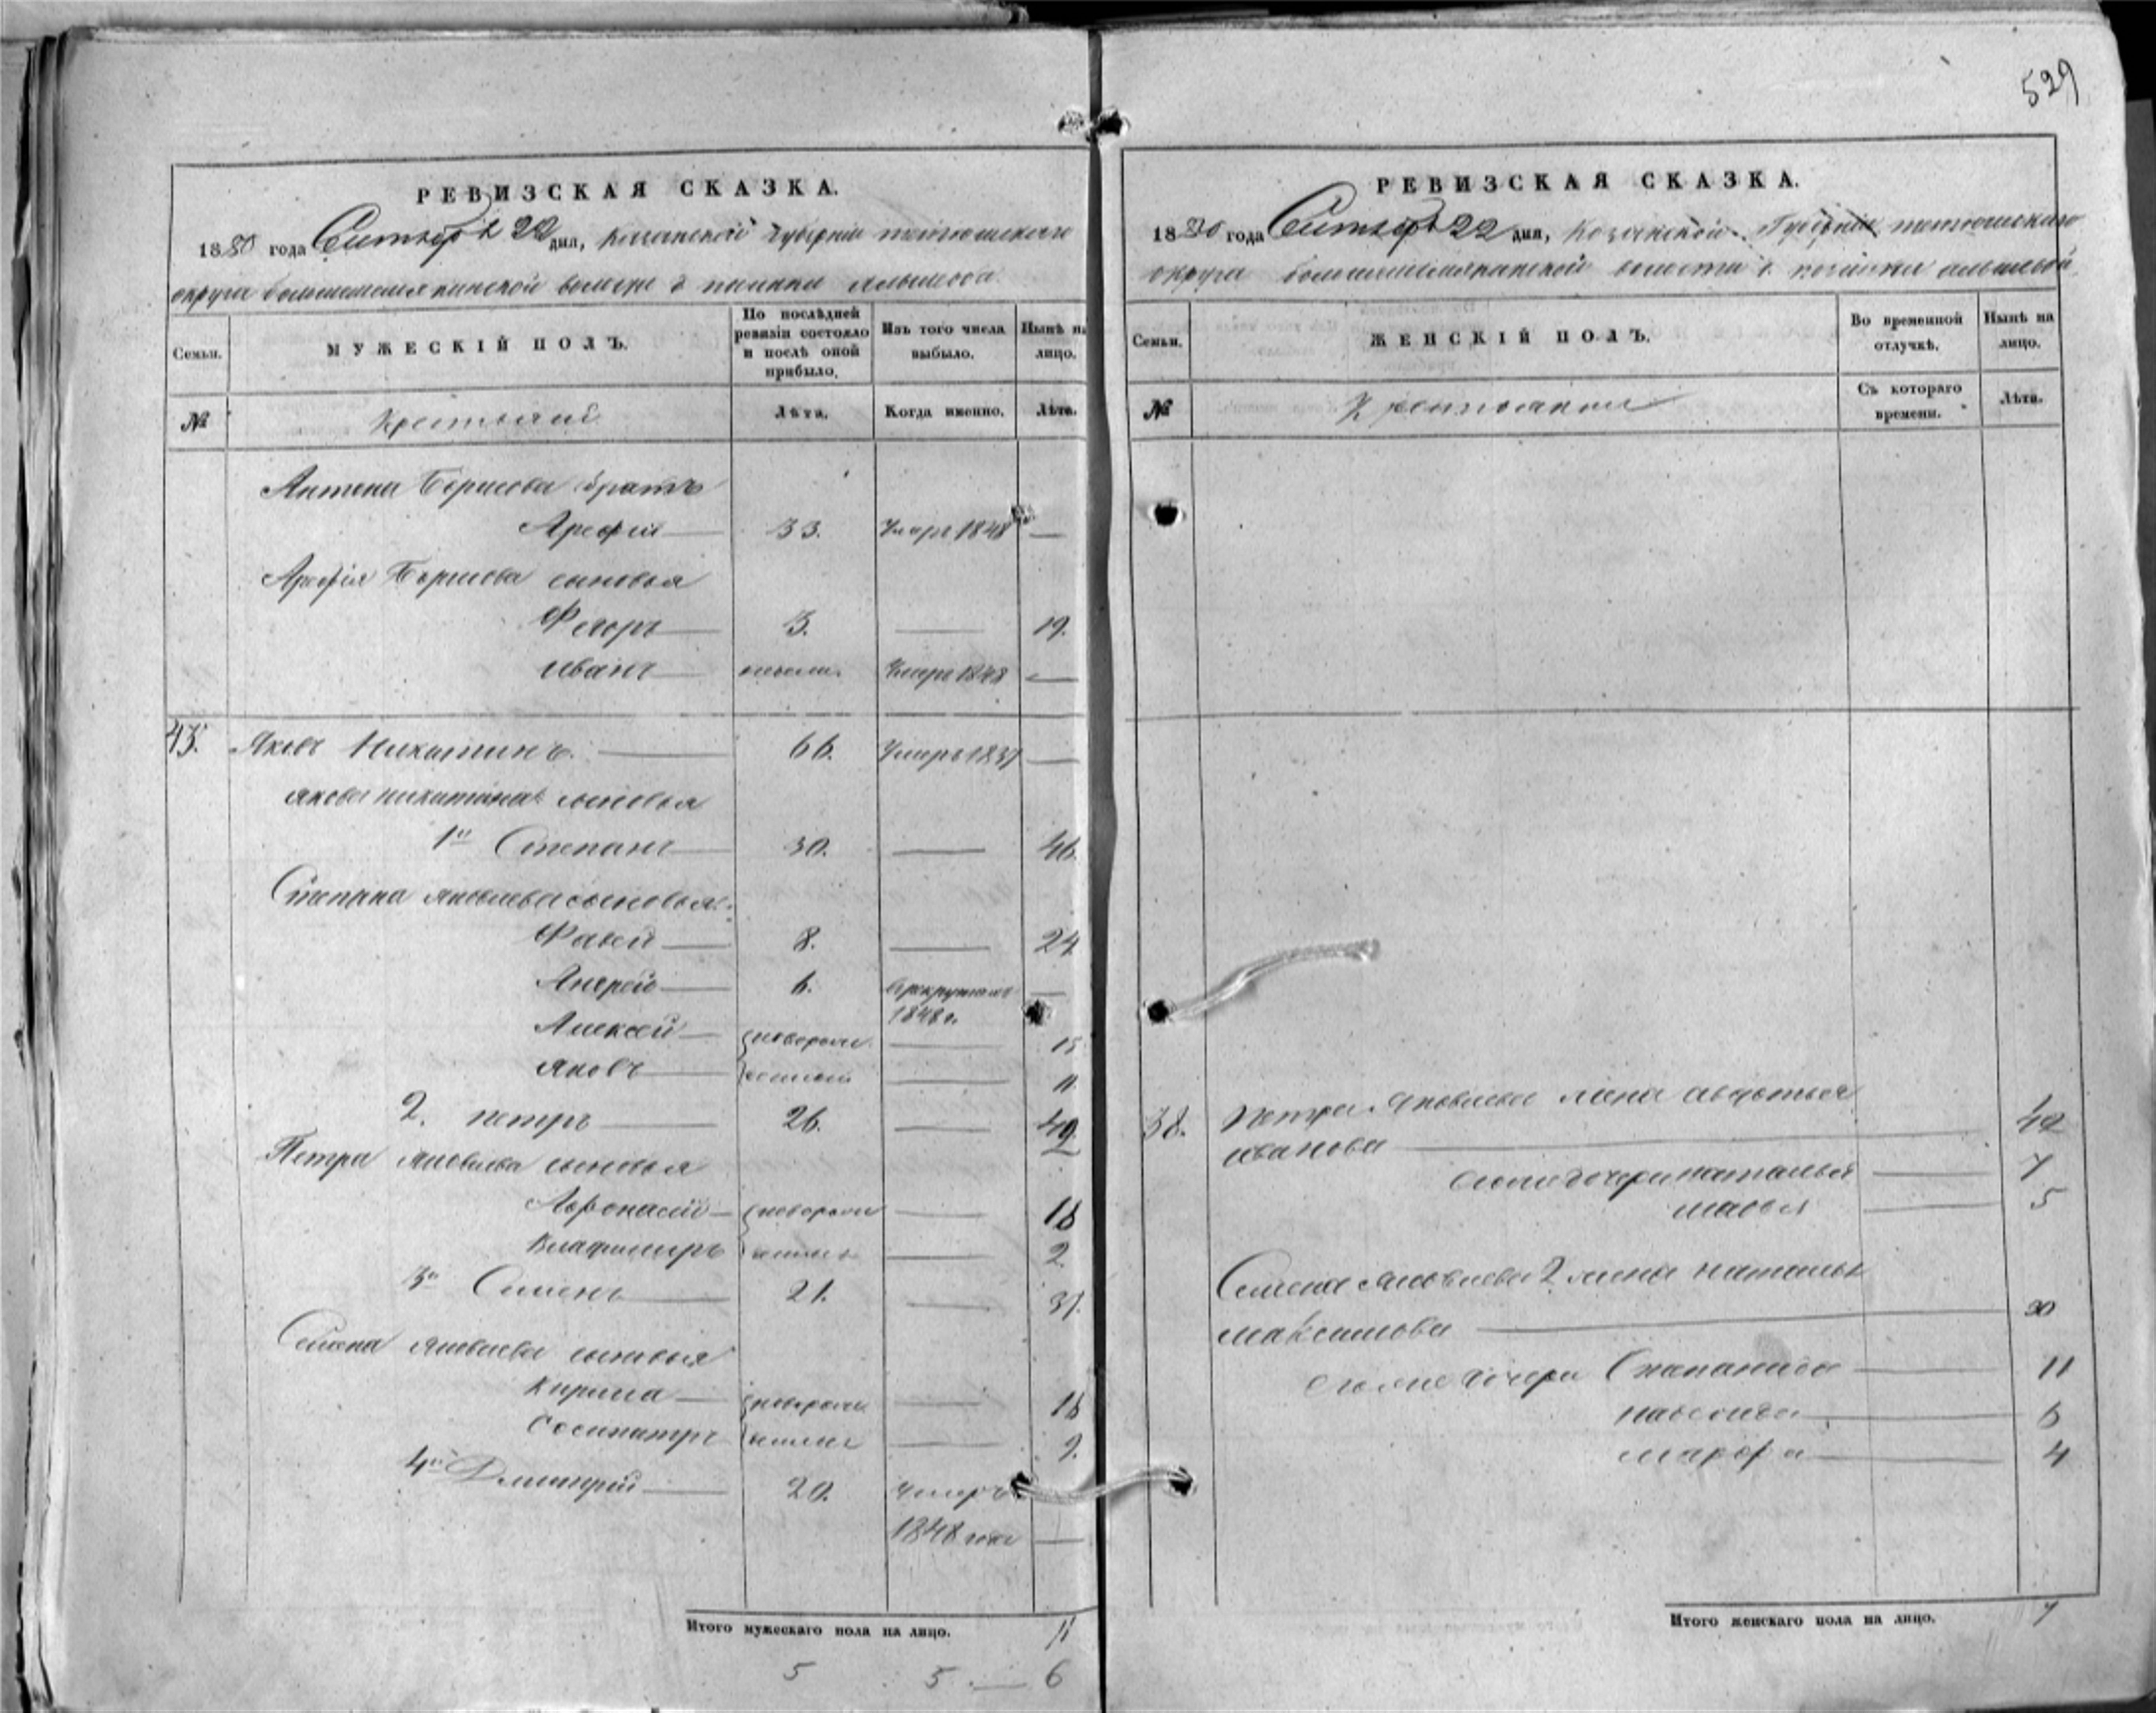 529
РЕВИЗСКАЯ СКАЗКА.
1850 года Сентября 22 дня, Казанской Губернии тетюшскаго
округа большешемякинской волости д
Семьи.
МУЖЕСКІЙ ПОЛЪ.
По послѣдней ревизіи состояло и послѣ оной прибыло.
Изъ того числа выбыло.
Нынѣ на лицо.
№
Крестьяне
Лѣта.
Когда именно.
Лѣта.
Антона Борисова братъ
Арефий — 33. Умеръ 1848 —
Арефія Борисова сыновья
Федоръ — 3. — 19.
Иванъ — Умеръ 1848 —
43. Яковъ Никитинъ. — 66. Умеръ 1837 —
Якова Никитина сыновья
1й Степанъ — 30. — 46.
Степана Яковлева сыновья:
8. — 24
Андрей — 6. —
1848 г.
Алексей — новорож — 15
Яковъ — денный — 11.
2. петръ — 26. — 42
Петра Яковлева сыновья
Афонасий — новорож — 18
Владимиръ — 2.
3й Семенъ — 21. — 37.
Семена Яковлева сыновья
Кирила — новорож — 18
Сосипатръ — 9.
4й Дмитрий — 20. умеръ
1848 года —
Итого мужескаго пола на лицо. 11
5 5 — 6
РЕВИЗСКАЯ СКАЗКА.
1850 года Сентября 22 дня, Казанской Губернии тетюшскаго
округа большешемякинской волости
Семьи.
ЖЕНСКІЙ ПОЛЪ.
Во временной отлучкѣ.
Нынѣ на лицо.
№
Съ котораго времени.
Лѣта.
38. Петра Яковлева жена Авдотья
Иванова — 42
дочери Наталья — 7
5
Семена Яковлева 2 жена Наталья
Максимова — 30
дочери Степанида — 11
6
Марфа — 4
Итого женскаго пола на лицо. 7